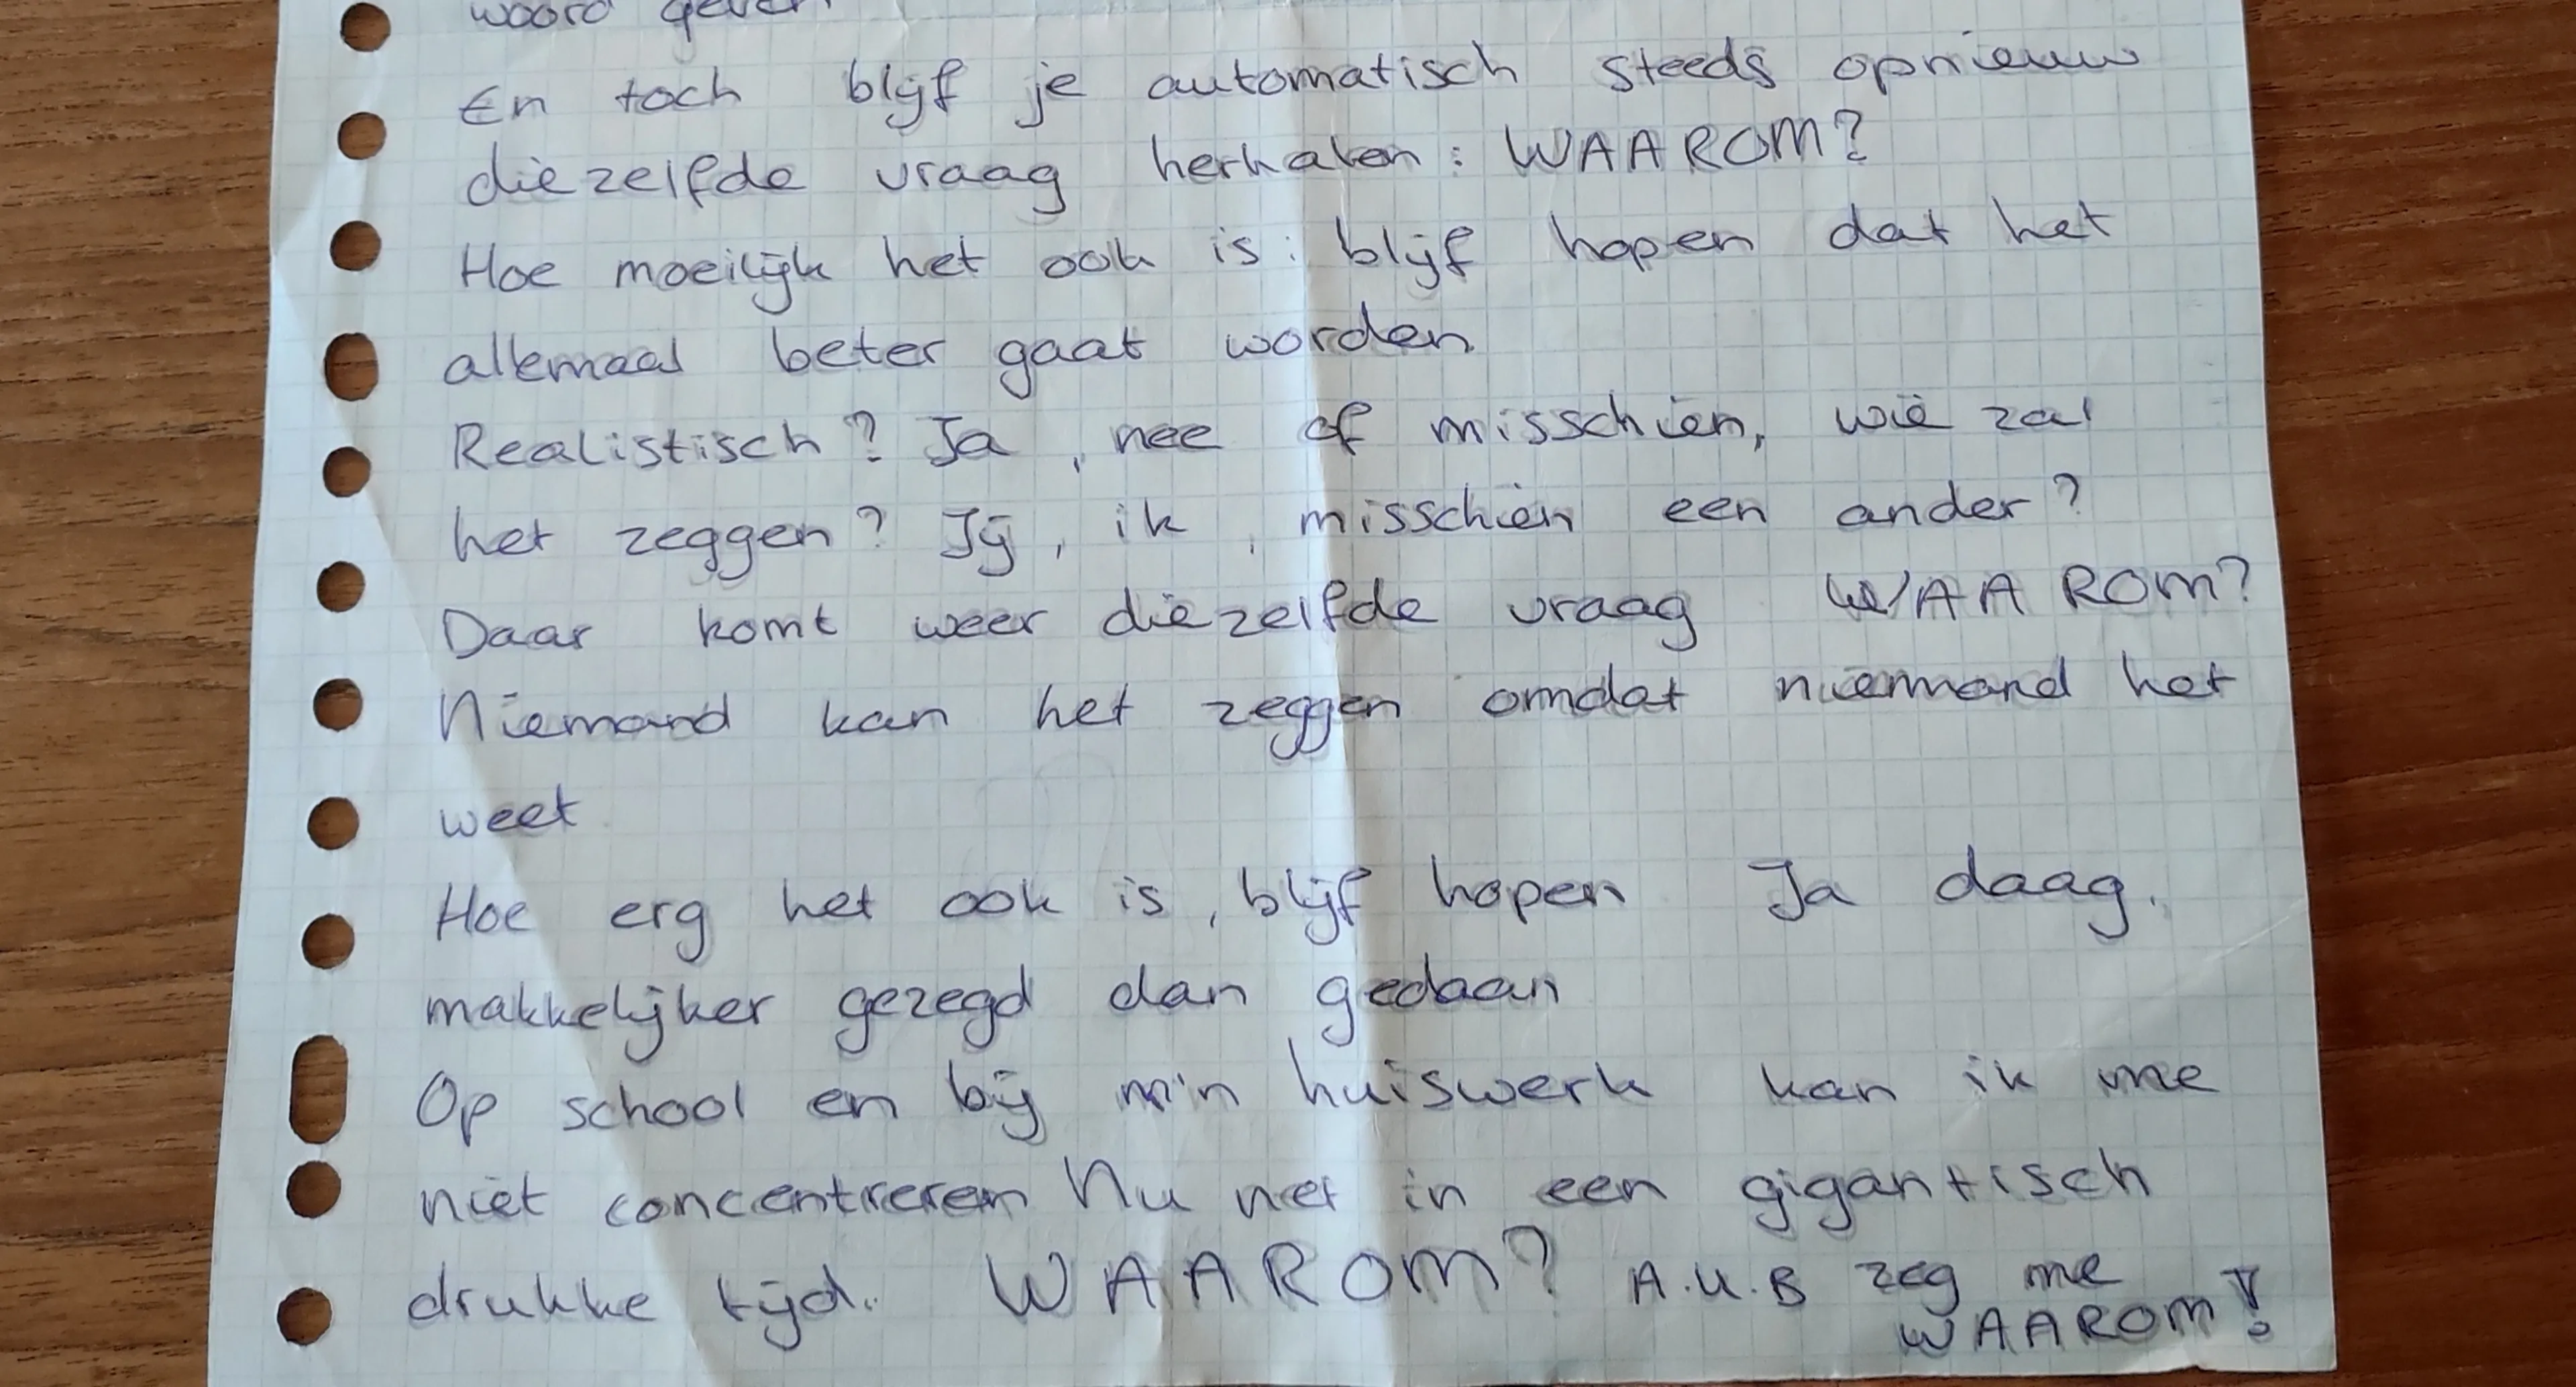 woord geven
En toch blijf je automatisch steeds opnieuw
diezelfde vraag herhalen: WAAROM?
Hoe moeilijk het ook is: blijf hopen dat het
allemaal beter gaat worden.
Realistisch? Ja, nee of misschien, wie zal
het zeggen? Jij, ik, misschien een ander?
Daar komt weer diezelfde vraag WAAROM?
Niemand kan het zeggen omdat niemand het
weet.
Hoe erg het ook is, blijf hopen. Ja daag.
makkelijker gezegd dan gedaan
Op school en bij m'n huiswerk kan ik me
niet concentreren Nu net in een gigantisch
drukke tijd. WAAROM? A.U.B zeg me
WAAROM!